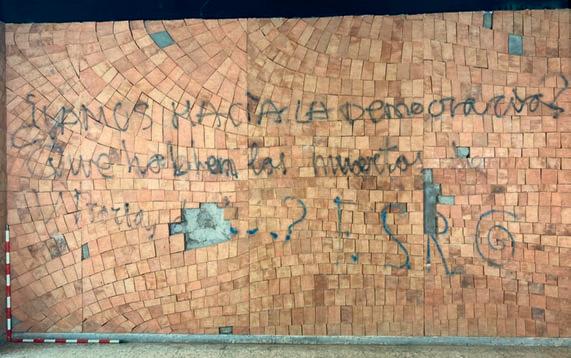 ¿VAMOS HACIA LA Democracia?
Que hablen los muertos de
Vitoria, ...? I.SR